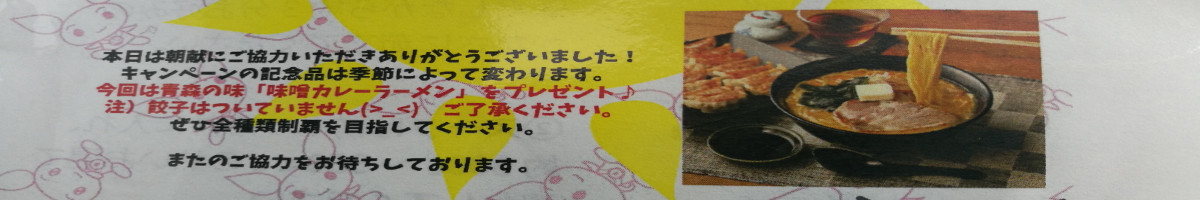 本日は朝献にご協力いただきありがとうございました！
キャンペーンの記念品は季節によって変わります。
今回は青森の味「味噌カレーラーメン」をプレゼント♪
注）餃子はついていません(>_<)　ご了承ください。
ぜひ全種類制覇を目指してください。
またのご協力をお待ちしております。